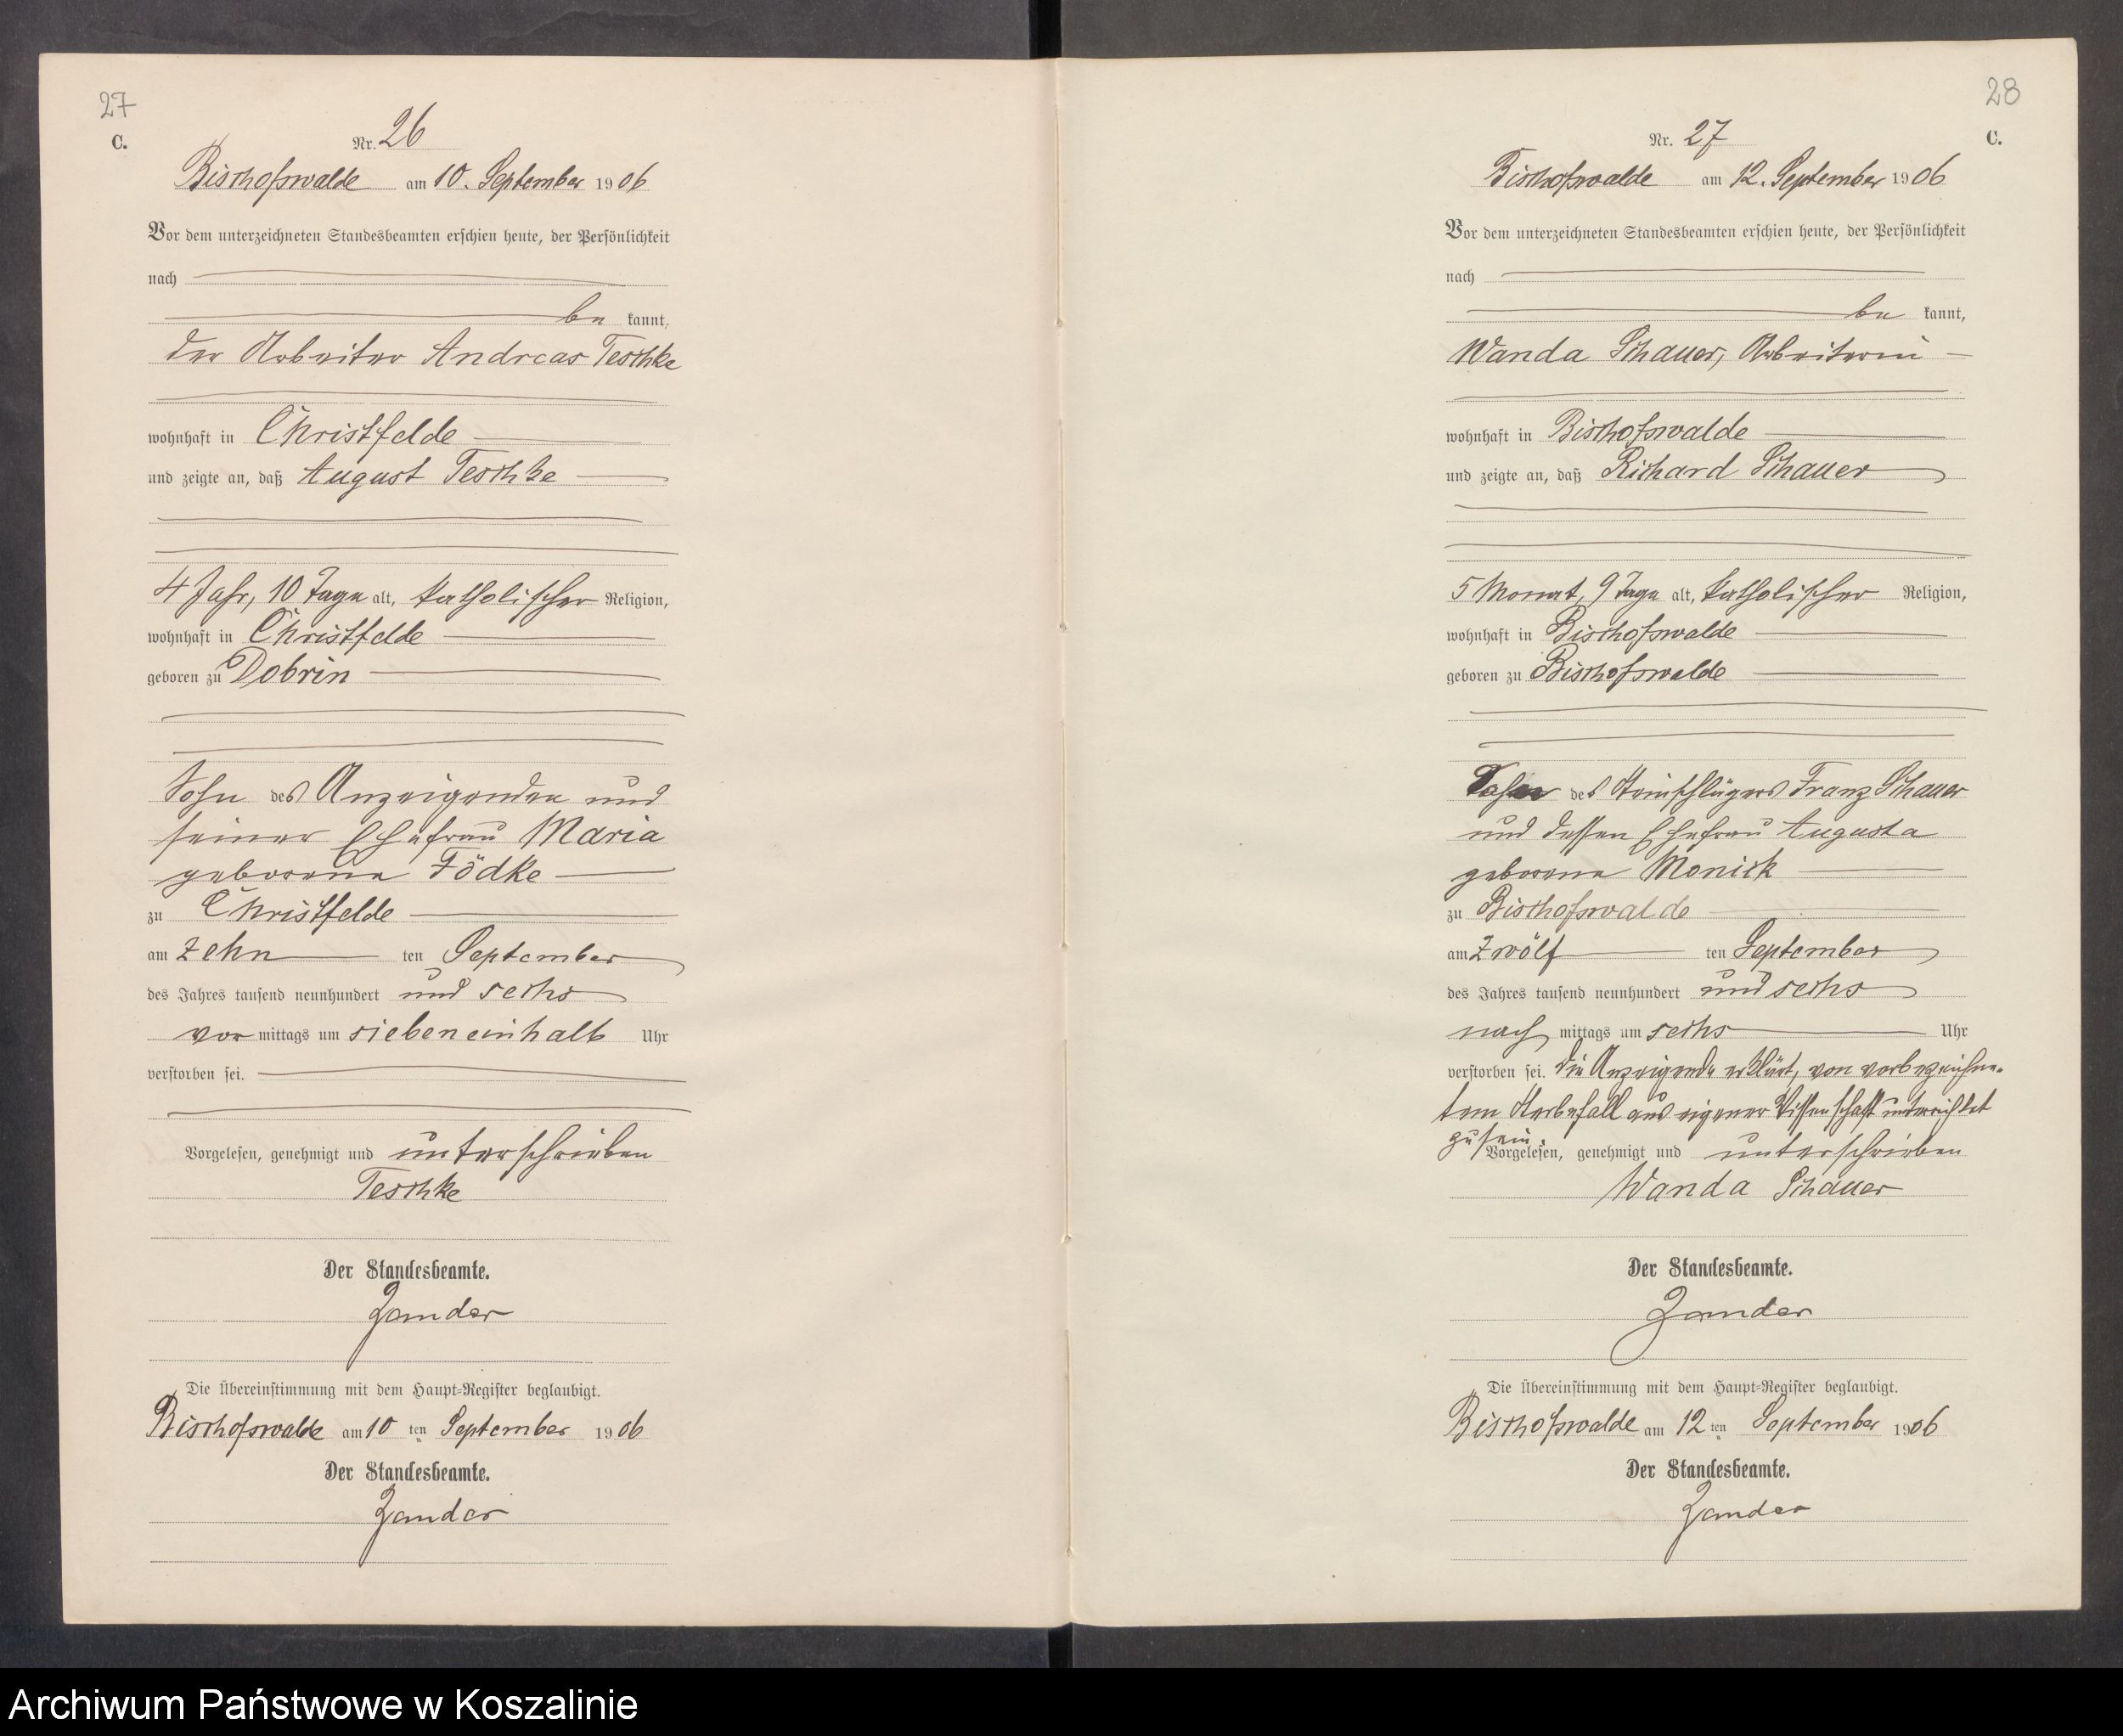 27
C.
Nr. 26
Bischofswalde am 10. September 1906
Vor dem unterzeichneten Standesbeamten erschien heute, der Persönlichkeit
nach
be kannt,
der Arbeiter Andreas Teschke
wohnhaft in Christfelde
und zeigte an, daß August Teschke
4 Jahr, 10 Tage alt, katholischer Religion,
wohnhaft in Christfelde
geboren zu Dobrin
Sohn des Anzeigenden und
seiner Ehefrau Maria
geborene Födke
zu Christfelde
am zehn ten September
des Jahres tausend neunhundert und sechs
vor mittags um sieben einhalb Uhr
verstorben sei.
Vorgelesen, genehmigt und unterschrieben
Teschke
Der Standesbeamte.
Zander
Die Übereinstimmung mit dem Haupt-Register beglaubigt.
Bischofswalde am 10 ten September 1906
Der Standesbeamte.
Zander
28
C.
Nr. 27
Bischofswalde am 12. September 1906
Vor dem unterzeichneten Standesbeamten erschien heute, der Persönlichkeit
nach
be kannt,
Wanda Schauer, Arbeiterin
wohnhaft in Bischofswalde
und zeigte an, daß Richard Schauer
5 Monat, 9 Tage alt, katholischer Religion,
wohnhaft in Bischofswalde
geboren zu Bischofswalde
Sohn des Steinschlägers Franz Schauer
und dessen Ehefrau Augusta
geborene Monick
zu Bischofswalde
am zwölf ten September
des Jahres tausend neunhundert und sechs
nach mittags um sechs Uhr
verstorben sei. Die Anzeigende erklärt, von vorbezeichne-
tem Sterbefall aus eigener Wissenschaft unterrichtet
zu sein.
Vorgelesen, genehmigt und unterschrieben
Wanda Schauer
Der Standesbeamte.
Zander
Die Übereinstimmung mit dem Haupt-Register beglaubigt.
Bischofswalde am 12 ten September 1906
Der Standesbeamte.
Zander
Archiwum Państwowe w Koszalinie